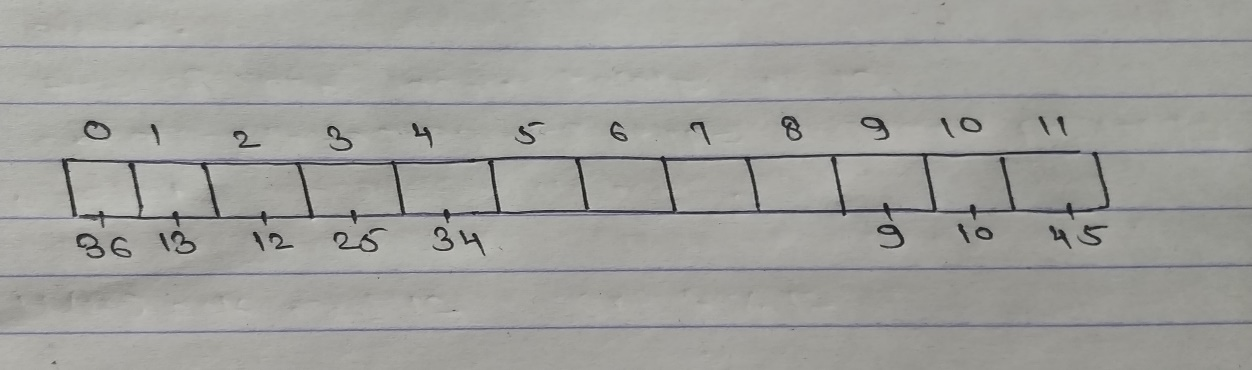 0 1 2 3 4 5 6 7 8 9 10 11
36 13 12 25 34 9 10 45